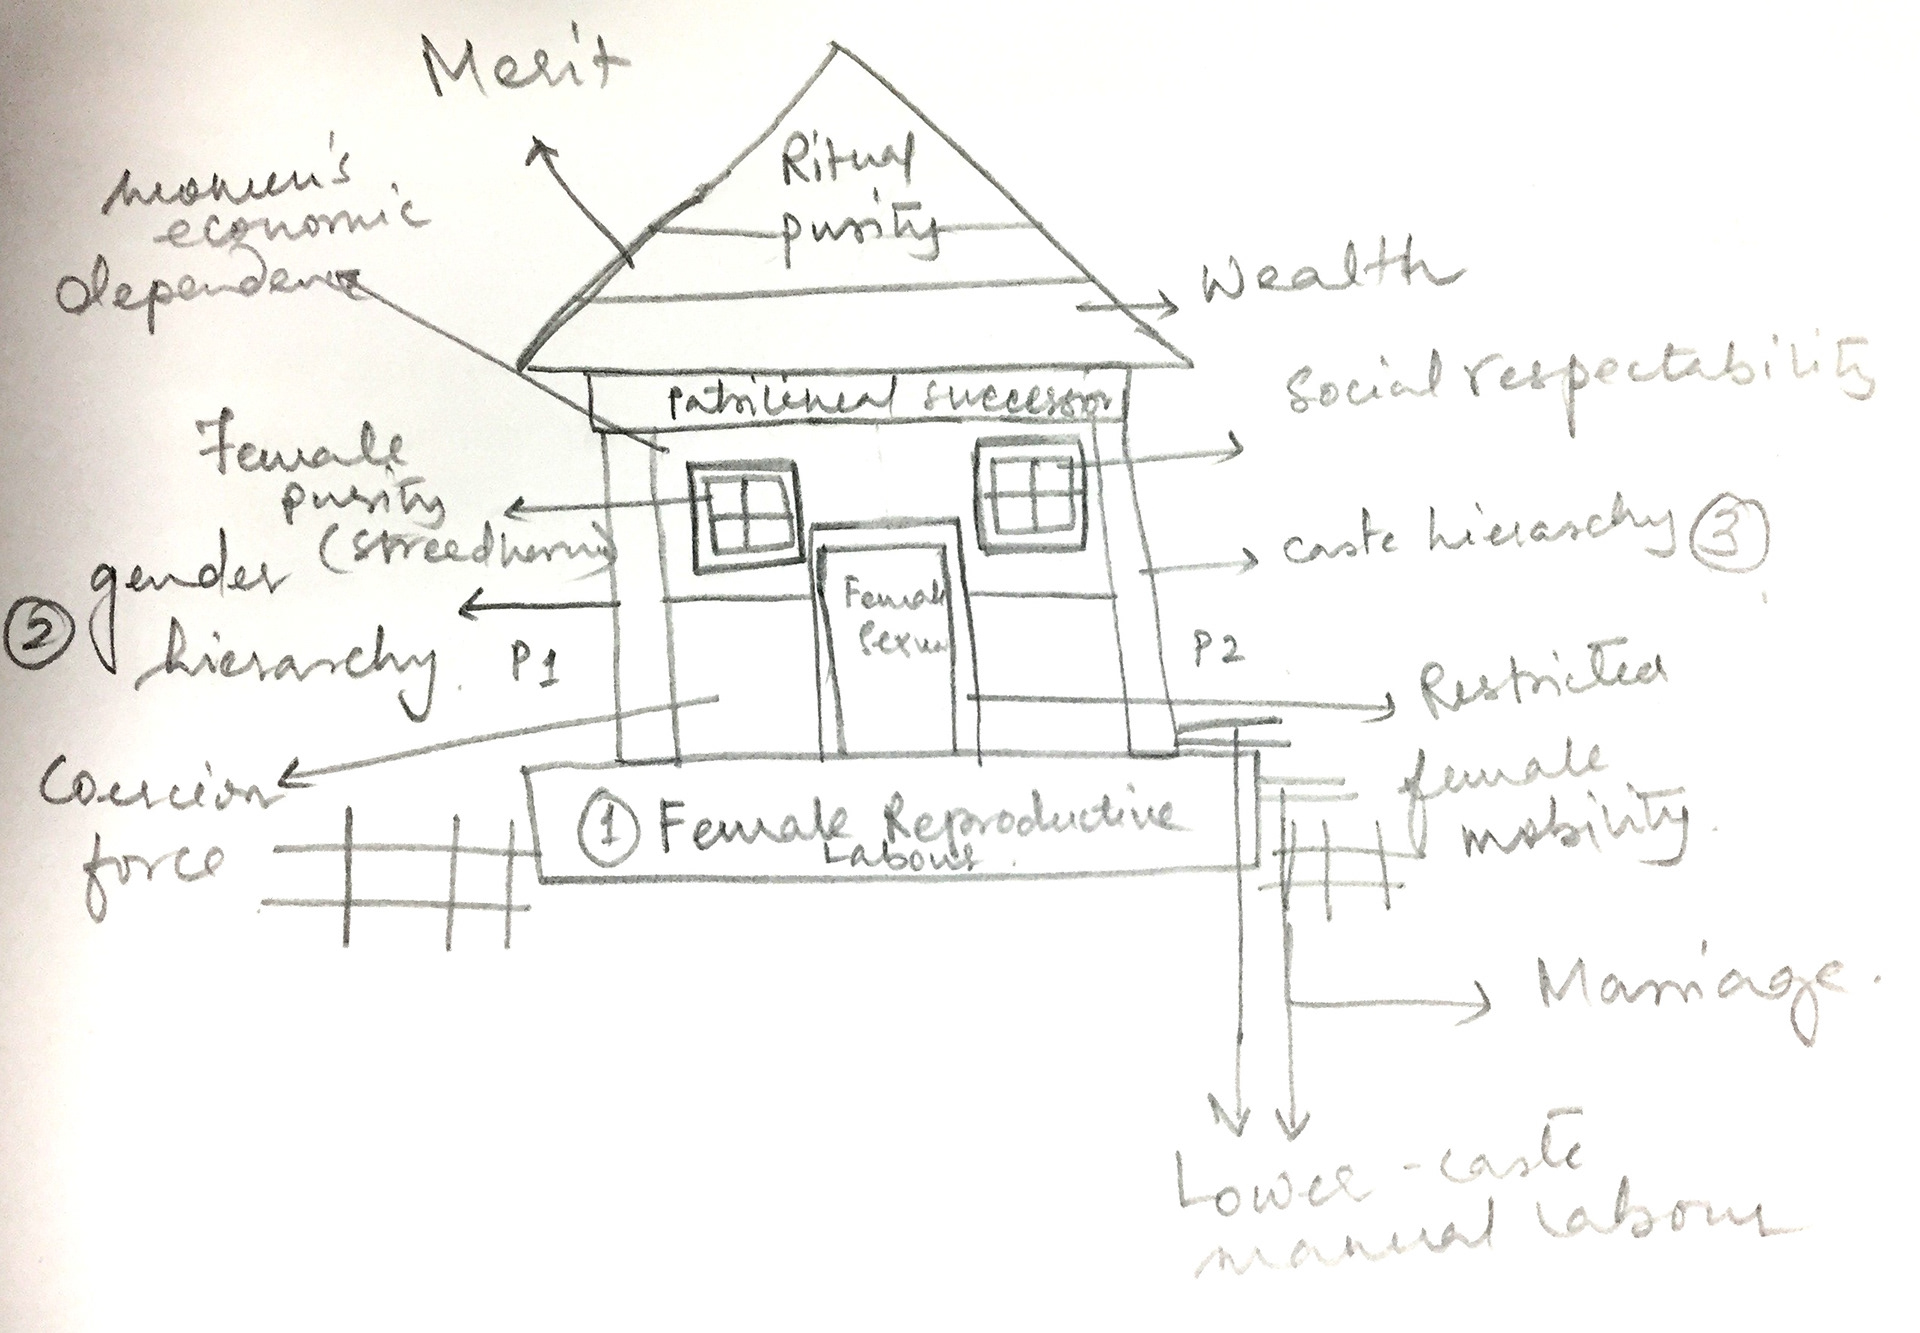 Merit
Ritual
purity
women's
economic
dependence
Wealth
Social respectability
Patrilineal succession
Female
purity
(streedharma)
caste hierarchy ③
gender
② hierarchy.
P1
Female
Sexua
P2
Restricted
female
mobility.
Coercion
force
① Female Reproductive
Labour.
Marriage.
Lower-caste
manual labour